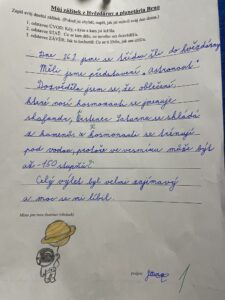 Můj zážitek z Hvězdárny a planetária Brno
Zapiš svůj dnešní zážitek. (Pokud jsi chyběl, napiš, jak jsi strávil svůj den doma.)
1. odstavec ÚVOD: Kdy, s kým a kam jsi šel/šla.
2. odstavec STAŤ: Co se tam dělo, co nového ses dozvěděl.
3. odstavec ZÁVĚR: Jak to hodnotíš: Co se ti líbilo, jak ses cítil/a.
Dne 26.1. jsme se třídou šli do hvězdárny.
Měli jsme představení „Astronaut".
Dozvěděla jsem se, že oblečení
které nosí kosmonaut se jmenuje
skafandr, prstenec Saturnu se skládá
z kamenů a kosmonauti se trénují
pod vodou, protože ve vesmíru může být
až -150 stupňů?
Celý výlet byl velmi zajímavý
a moc se mi líbil.
Místo pro tvou ilustraci
1